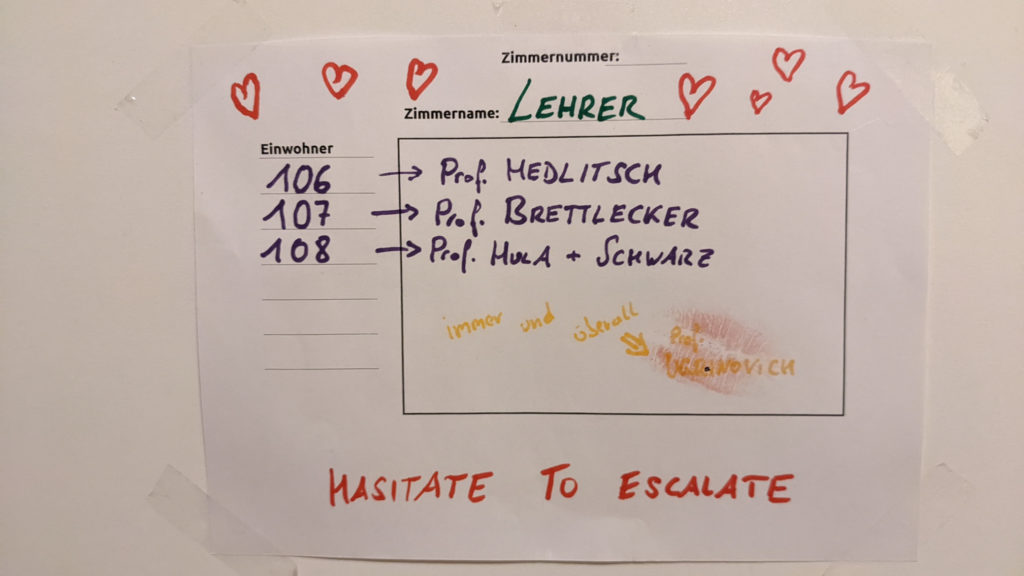 Zimmernummer:
Zimmername: LEHRER
Einwohner
106 → Prof. MEDLITSCH
107 → Prof. BRETTLECKER
108 → Prof. HULA + SCHWARZ
immer und überall
Prof.
HASITATE TO ESCALATE